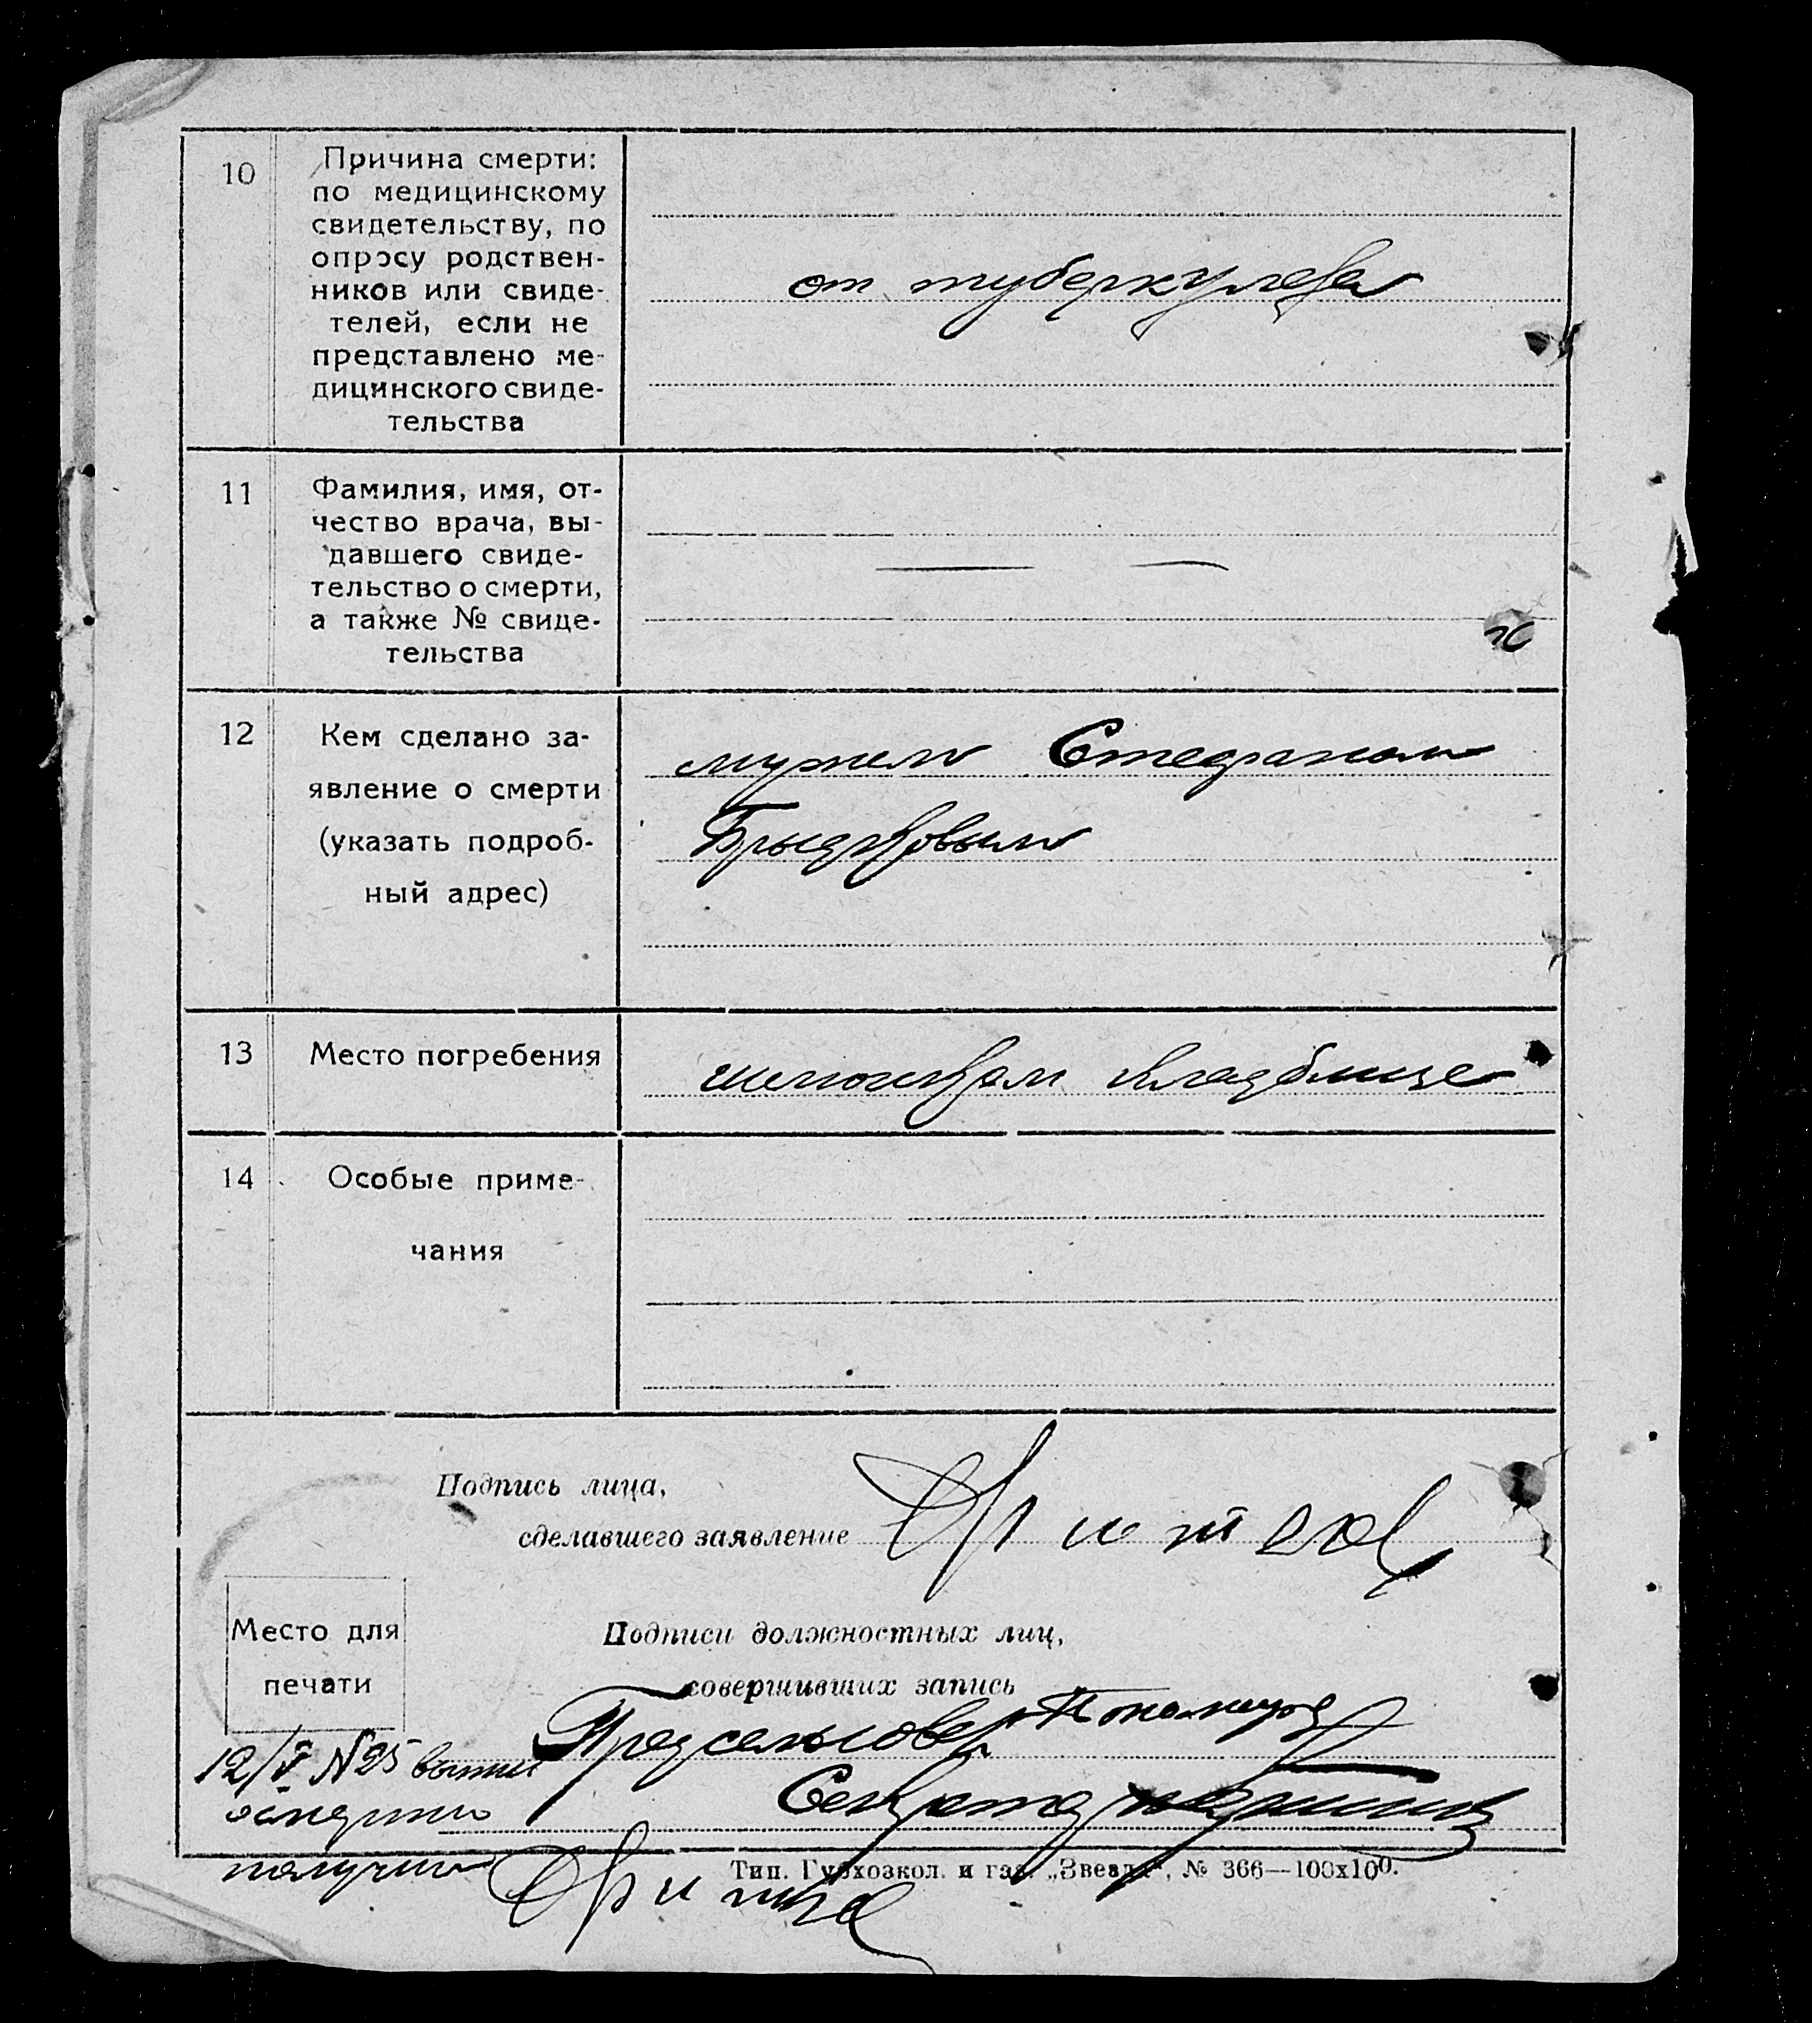 10
Причина смерти:
по медицинскому
свидетельству, по
опросу родствен-
ников или свиде-
телей, если не
представлено ме-
дицинского свиде-
тельства
от туберкулеза
11
Фамилия, имя, от-
чество врача, вы-
давшего свиде-
тельство о смерти,
а также № свиде-
тельства
— —
12
Кем сделано за-
явление о смерти
(указать подроб-
ный адрес)
мужем Стефаном
13
Место погребения
кладбище
14
Особые приме-
чания
Подпись лица,
сделавшего заявление
Место для
печати
Подписи должностных лиц,
совершивших запись
Предсельсовет
12/V N25
Секретарь
получил
Тип. Губхозкол. и газ. „Звезда“, № 366—100х100.